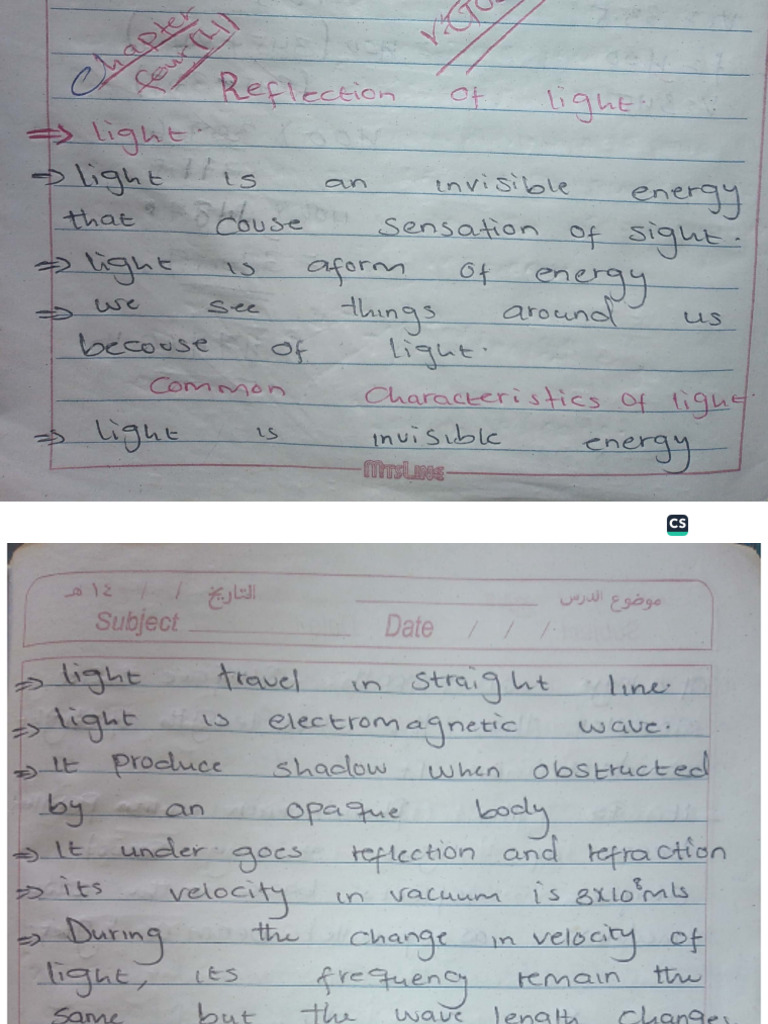 Chapter
four (4)
Reflection of light.
⇒ light.
⇒ light is an invisible energy
that couse sensation of sight.
⇒ light is aform of energy
⇒ we see things around us
becouse of light.
Common Characteristics of light.
⇒ light is invisible energy
CS
موضوع الدرس التاريخ / / ١٤ هـ
Subject Date / / /
⇒ light travel in straight line.
⇒ light is electromagnetic wave.
⇒ It produce shadow when obstructed
by an opaque body
⇒ It under goes reflection and refraction
⇒ its velocity in vacuum is 3x10⁸m/s
⇒ During the change in velocity of
light, its frequency remain the
same but the wave length changes